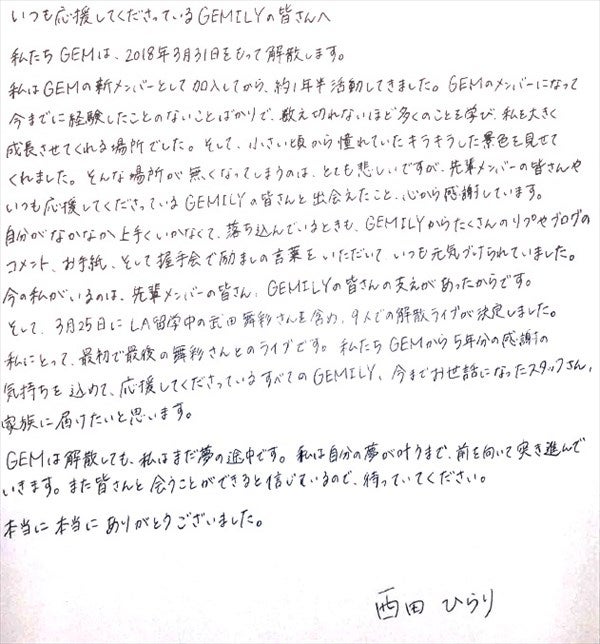 いつも応援してくださっているGEMILYの皆さんへ
私たちGEMは、2018年3月31日をもって解散します。
私はGEMの新メンバーとして加入してから、約1年半活動してきました。GEMのメンバーになって
今までに経験したことのないことばかりで、数え切れないほど多くのことを学び、私を大きく
成長させてくれる場所でした。そして、小さい頃から憧れていたキラキラした景色を見せて
くれました。そんな場所が無くなってしまうのは、とても悲しいですが、先輩メンバーの皆さんや
いつも応援してくださっているGEMILYの皆さんと出会えたこと、心から感謝しています。
自分がなかなか上手くいかなくて、落ち込んでいるときも、GEMILYからたくさんのリプやブログの
コメント、お手紙、そして握手会で励ましの言葉をいただいて、いつも元気づけられていました。
今の私がいるのは、先輩メンバーの皆さん、GEMILYの皆さんの支えがあったからです。
そして、3月25日にLA留学中の武田舞彩さんを含め、9人での解散ライブが決定しました。
私にとって、最初で最後の舞彩さんとのライブです。私たちGEMから5年分の感謝の
気持ちを込めて、応援してくださっているすべてのGEMILY、今までお世話になったスタッフさん、
家族に届けたいと思います。
GEMは解散しても、私はまだ夢の途中です。私は自分の夢が叶うまで、前を向いて突き進んで
いきます。また皆さんと会うことができると信じているので、待っていてください。
本当に本当にありがとうございました。
西田 ひらり